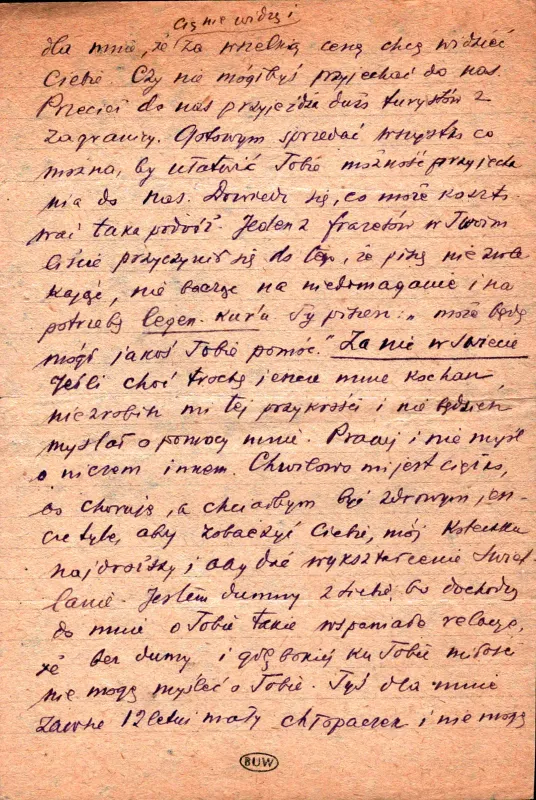 Cię nie widzę i
dla mnie, że za wszelką cenę chcę widzieć
Ciebie. Czy nie mógłbyś przyjechać do nas.
Przecież do nas przyjeżdża dużo turystów z
zagranicy. Gotowym sprzedać wszystko co
można, by ułatwić Tobie możność przyjecha
nia do nas. Dowiedz się, co może koszto
wać taka podróż. Jeden z frazesów w Twoim
liście przyczynił się do tego, że piszę nie zwle
kając, nie bacząc na niedomaganie i na
potrzebę Ty piszesz: „może będę
mógł jakoś Tobie pomóc." Za nic w świecie
Jeśli choć trochę jeszcze mnie kochasz,
nie zrobisz mi tej przykrości i nie będziesz
myślał o pomocy mnie. Pracuj i nie myśl
o niczem innem. Chwilowo mi jest ciężko,
bo choruję, a chciałbym być zdrowym jesz-
cze tyle, aby zobaczyć Ciebie, mój Koteczku
najdroższy i aby dać wykształcenie Świet
lanie. Jestem dumny z Ciebie, bo dochodzą
do mnie o Tobie takie wspaniałe relacje,
że bez dumy i głębokiej ku Tobie miłości
nie mogę myśleć o Tobie. Tyś dla mnie
zawsze 12 letni mały chłopaczek i nie mogę
BUW